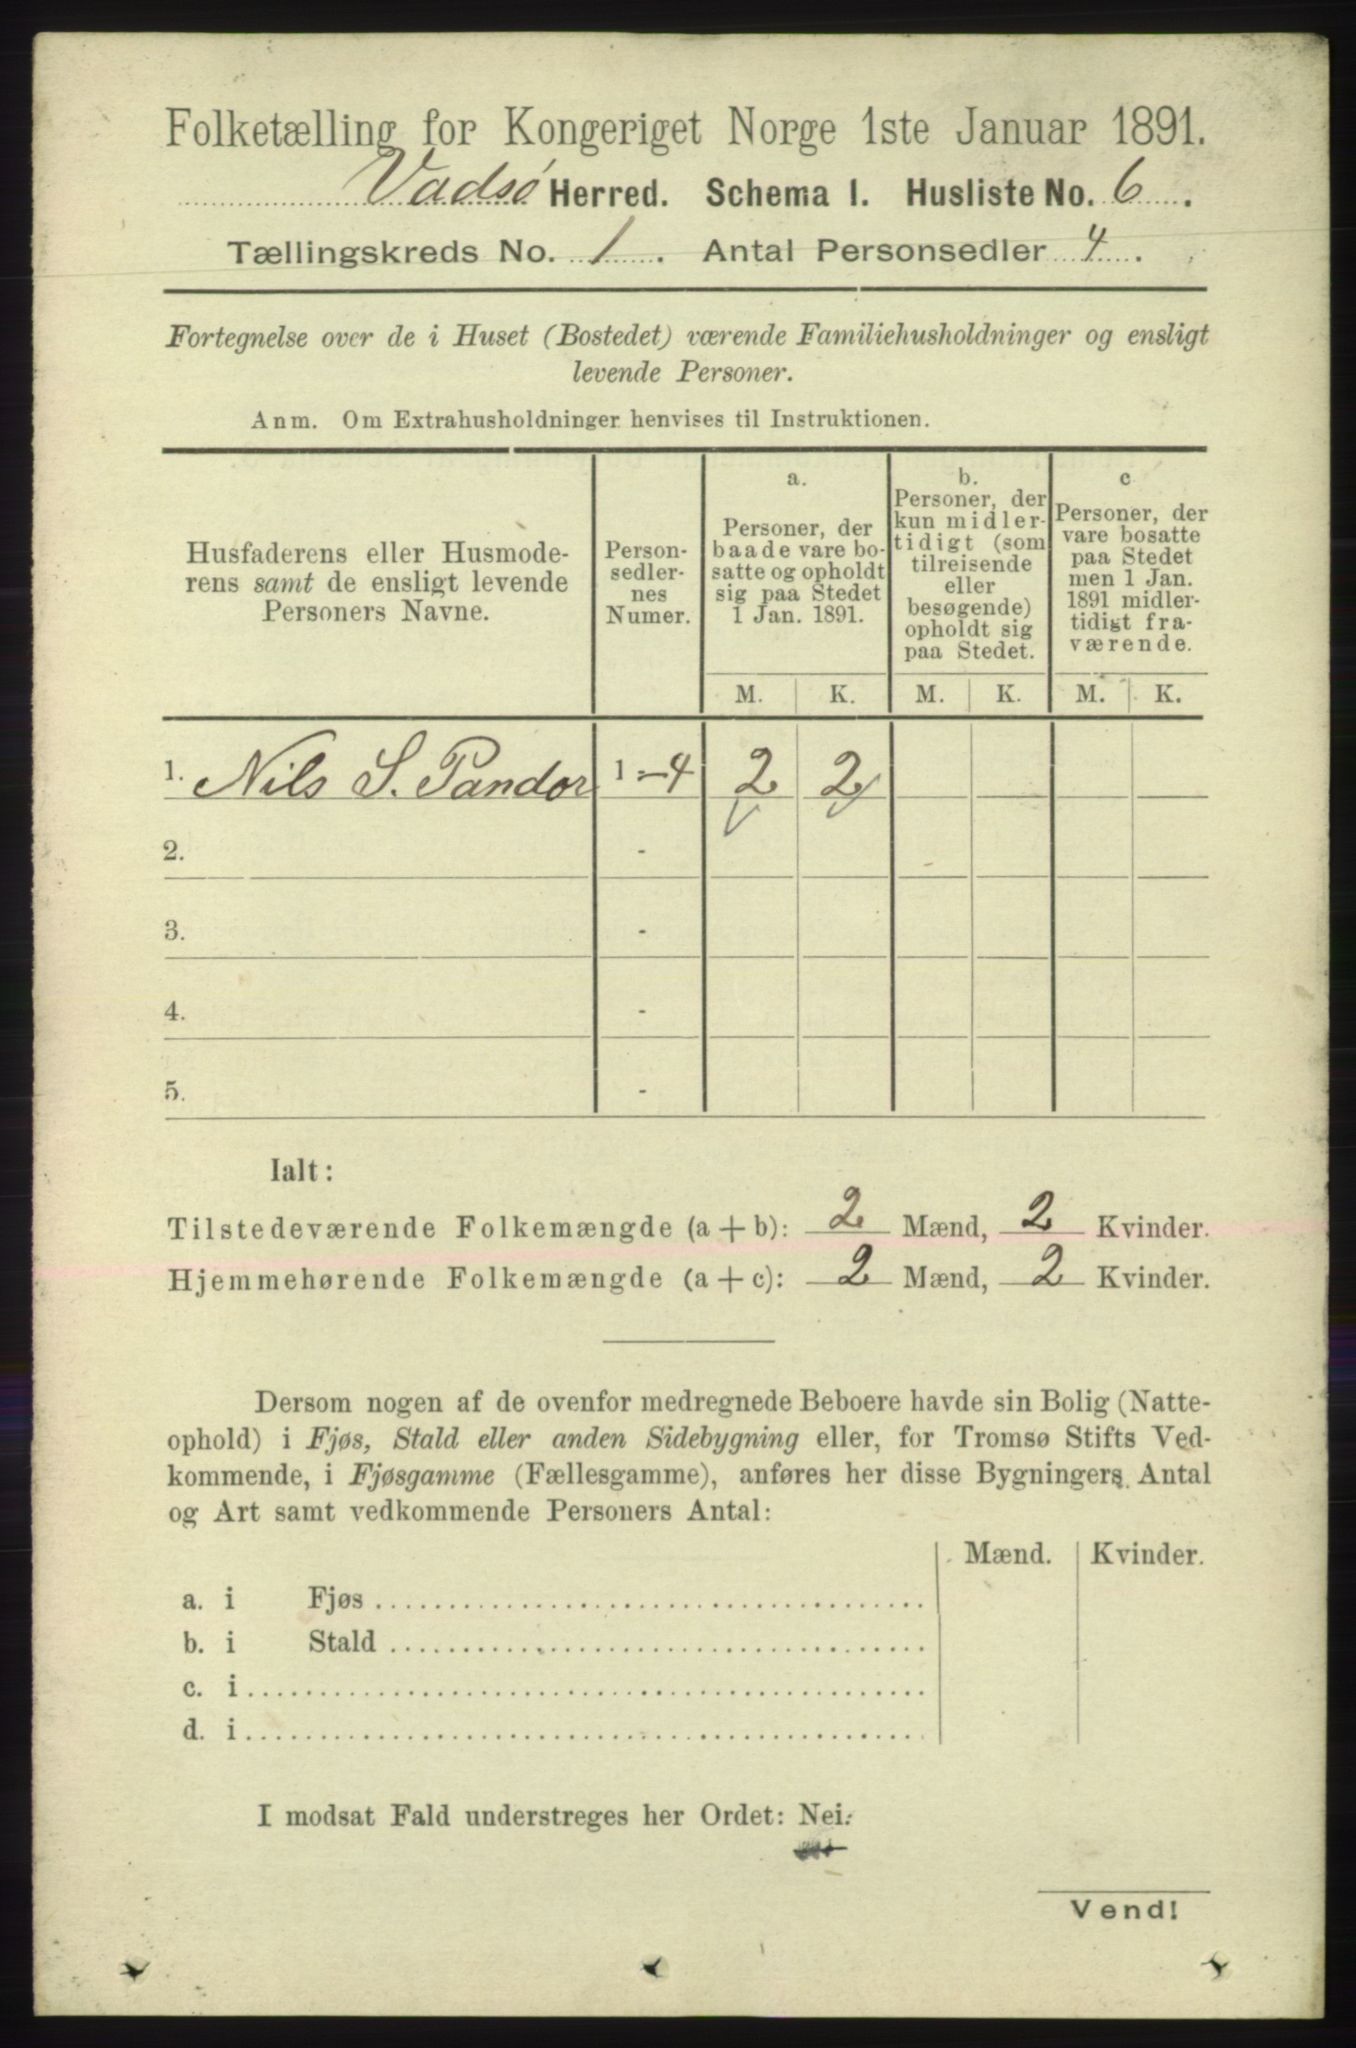 Folketælling for Kongeriget Norge 1ste Januar 1891.
Vadsø Herred. Schema I. Husliste No. 6.
Tællingskreds No. 1. Antal Personsedler 4.
Fortegnelse over de i Huset (Bostedet) værende Familiehusholdninger og ensligt
levende Personer.
Anm. Om Extrahusholdninger henvises til Instruktionen.
Husfaderens eller Husmode-
rens samt de ensligt levende
Personers Navne.
Person-
sedler-
nes
Numer.
a.
Personer, der
baade vare bo-
satte og opholdt
sig paa Stedet
1 Jan. 1891.
b.
Personer, der
kun midler-
tidigt (som
tilreisende
eller
besøgende)
opholdt sig
paa Stedet.
c
Personer, der
vare bosatte
paa Stedet
men 1 Jan.
1891 midler-
tidigt fra-
værende.
M. K. M. K. M. K.
1. Nils S. Pandor 1-4 2 2
2. -
3. -
4. -
5. -
Ialt:
Tilstedeværende Folkemængde (a + b): 2 Mænd, 2 Kvinder.
Hjemmehørende Folkemængde (a + c): 2 Mænd, 2 Kvinder.
Dersom nogen af de ovenfor medregnede Beboere havde sin Bolig (Natte-
ophold) i Fjøs, Stald eller anden Sidebygning eller, for Tromsø Stifts Ved-
kommende, i Fjøsgamme (Fællesgamme), anføres her disse Bygningers Antal
og Art samt vedkommende Personers Antal:
Mænd. Kvinder.
a. i Fjøs
b. i Stald
c. i
d. i
I modsat Fald understreges her Ordet: Nei.
Vend!